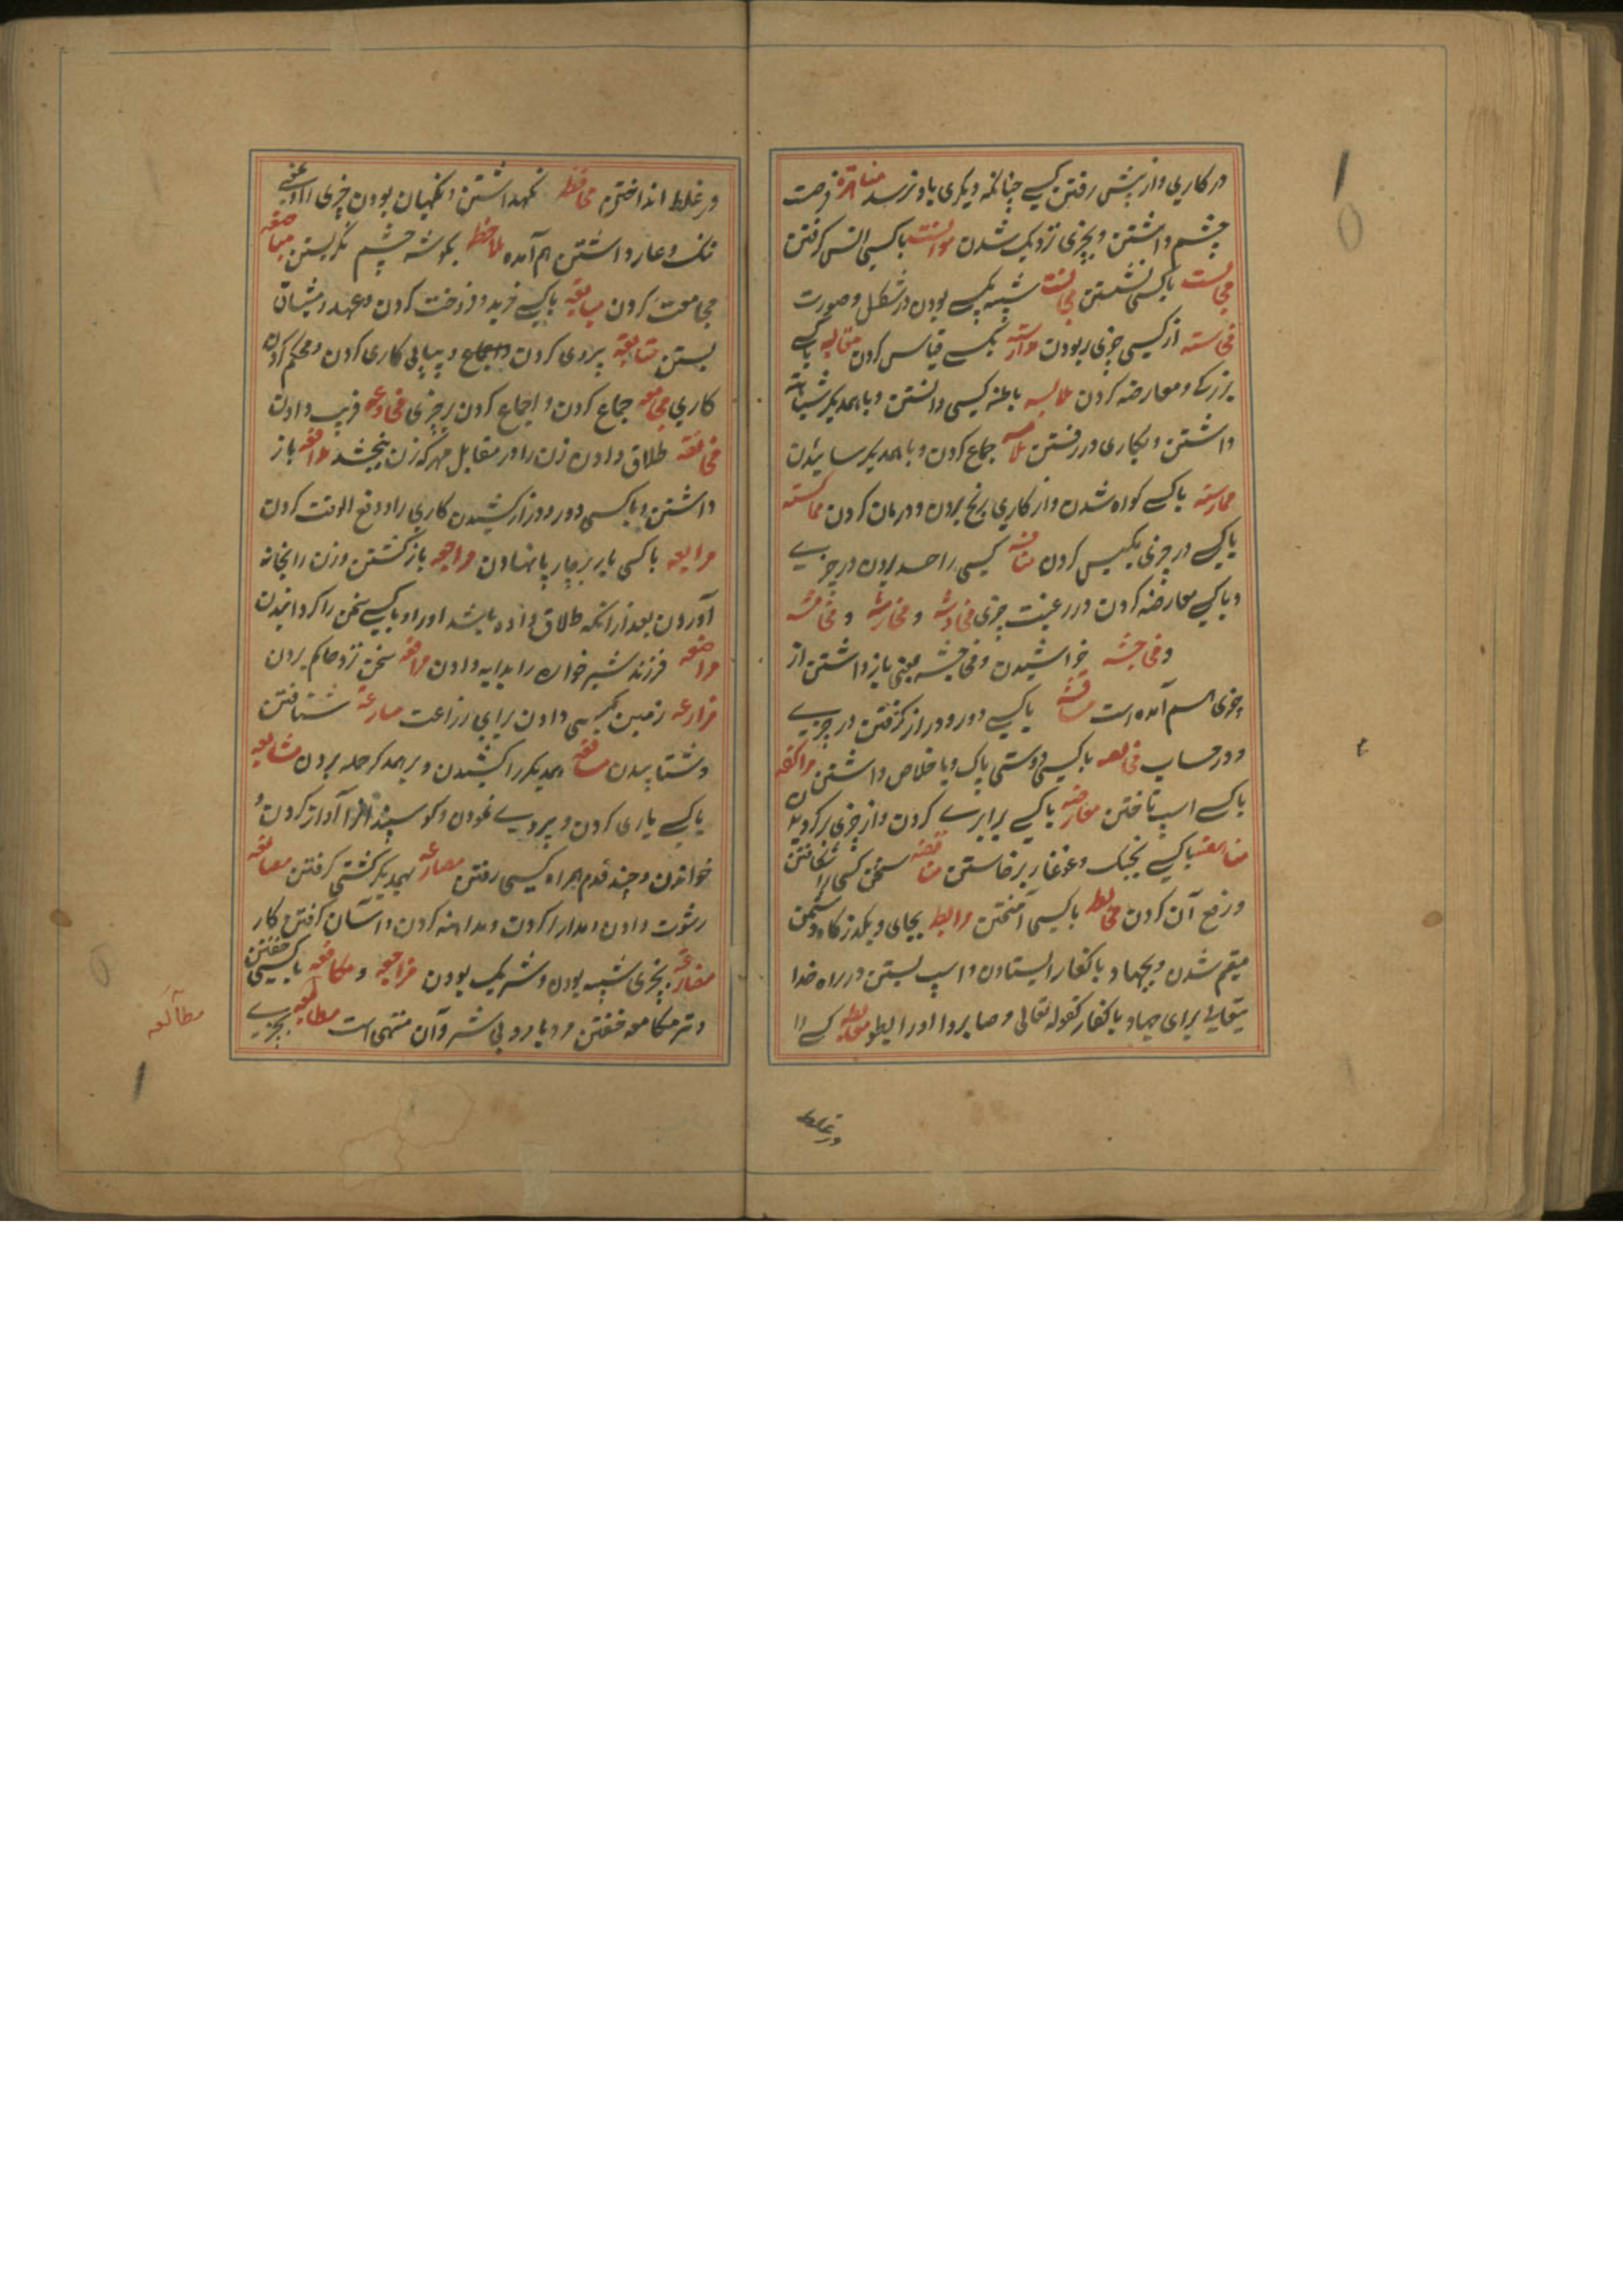 در کاری و از پیش رفتن کسی چنانکه دیگری باو نرسد فرصت
چشم داشتن و بچیزی نزدیک شدن موانست باکسی انس کرفتن
مجالست باکسی نشستن مجانست شبیه یکی بودن در شکل و صورت
از کسی چیزی ربودن بکسی قیاس کردن باکسی
بزرکی و معارضه کردن ملابسه باطن کسی دانستن و با همدیکر شباهت
داشتن و بکاری در رفتن جماع کردن و با همدیکر سائیدن
ممارسه باکسی کواه شدن و از کاری رنج بردن و درمان کردن مماکسه
باکسی در چیزی کردن منافسه کسی را حسد بردن در چیزی
و باکسی معارضه کردن در رغبت چیزی مخادشه و مخارشه و
و خراشیدن و بمعنی باز داشتن از
چیزی هم آمده است مناقشه باکسی دور و دراز کرفتن در چیزی
و در حساب باکسی دوستی پاک و با خلاص داشتن مراکضه
باکسی اسپ تاختن معارضه باکسی برابری کردن و از چیزی
باکسی بجنک و غوغا برخاستن مناقضه سخن کسی را شکافتن
و رفع آن کردن مخالطه باکسی آمیختن مرابطه بجای و بکذرکاه دشمن
مقیم شدن و بجهاد با کفار ایستادن و اسپ بستن در راه خدا
یتعالی برای جهاد با کفار کقوله تعالی و صابروا و رابطوا مغالطه کسی را
در غلط
در غلط انداختن محافظه نکهداشتن و نکهبان بودن چیزی را
ننک و عار داشتن هم آمده ملاحظه بکوشه چشم نکریستن مباضعه
مجامعت کردن مبایعه باکسی خرید و فروخت کردن و عهد و میثاق
بستن متابعه پیروی کردن و پیاپی کاری کردن و محکم کردن
کاری مجامعه جماع کردن و اجماع کردن بر چیزی مخادعه فریب دادن
مخالعه طلاق دادن زن را در مقابل مهر که زن ببخشد مدافعه باز
داشتن و باکسی دور و دراز کشیدن کاری را و دفع الوقت کردن
مرابعه باکسی بار بر چارپا نهادن مراجعه بازکشتن و زن را بخانه
آوردن بعد از آنکه طلاق داده باشد او را و باکسی سخن را کردانیدن
مراضعه فرزند شیرخواره را بدایه دادن مرافعه سخن نزد حاکم بردن
مزارعه زمین بکسی دادن برای زراعت مسارعة شتافتن
و شتابیدن همدیکر را کشیدن و بر همدکر حمله بردن مشایعه
باکسی یاری کردن و پیروی نمودن و کوسپند را آواز کردن و
خواندن و چند قدم همراه کسی رفتن مصارعه بهمدیکر کشتی کرفتن مصانعه
رشوت دادن و مدارا کردن و مداهنه کردن و آسان کرفتن کار
مضارعة بچیزی شبیه بودن و شریک بودن و مکامعه باکسی خفتن
و در مکامعه خفتن رو با رو بی ستر و آن منهی است مطالعه بچیزی
مطالعه